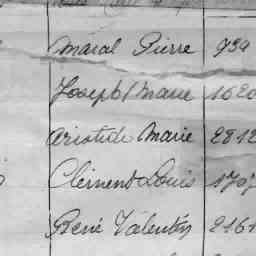 Maral Pierre 939
Joseph Marie 1620
Aristide Marie 2812
Clément Louis 1707
René Valentin 2161